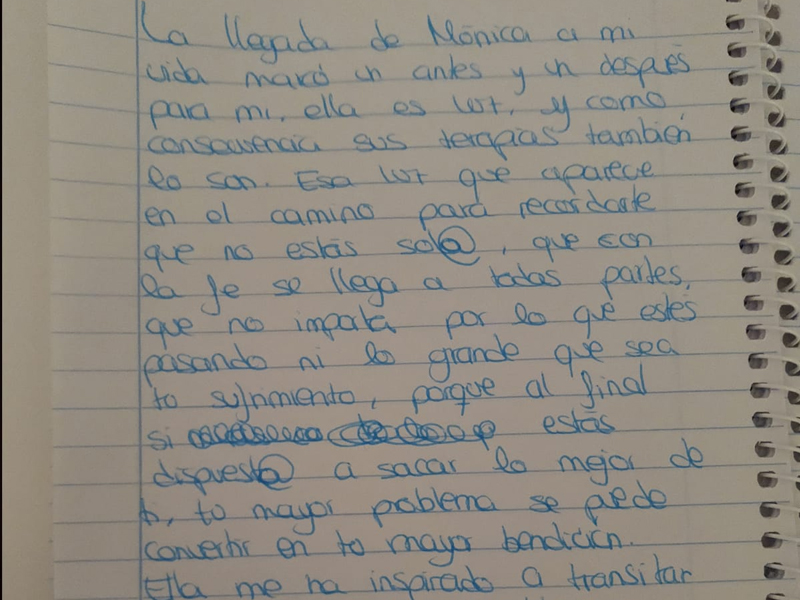 La llegada de Mónica a mi
vida marcó un antes y un después
para mi, ella es luz, y como
consecuencia sus terapias también
lo son. Esa luz que aparece
en el camino para recordarte
que no estás sol@, que con
la fe se llega a todas partes,
que no importa por lo que estés
pasando ni lo grande que sea
tu sufrimiento, porque al final
si estás
dispuest@ a sacar lo mejor de
ti, tu mayor problema se puede
convertir en tu mayor bendición.
Ella me ha inspirado a transitar